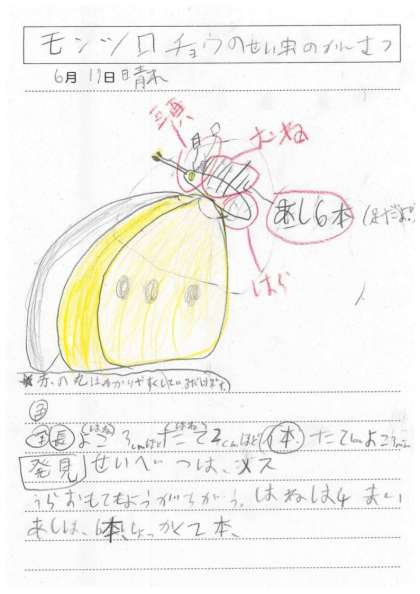 モンツロチョウのせい虫のかんさつ
6月19日晴れ
頭
むね
あし6本(足だよ!)
はら
※赤の丸はわかりやすくしているだけです。
全長 よこ(はね)3cmぐらいたて(はね)2cmほど 体 たて1cmよこ3mm
発見 せいべつは、メス
うらおもてもようがちがう。はねは4まい
あしは、6本、しょっかく2本、